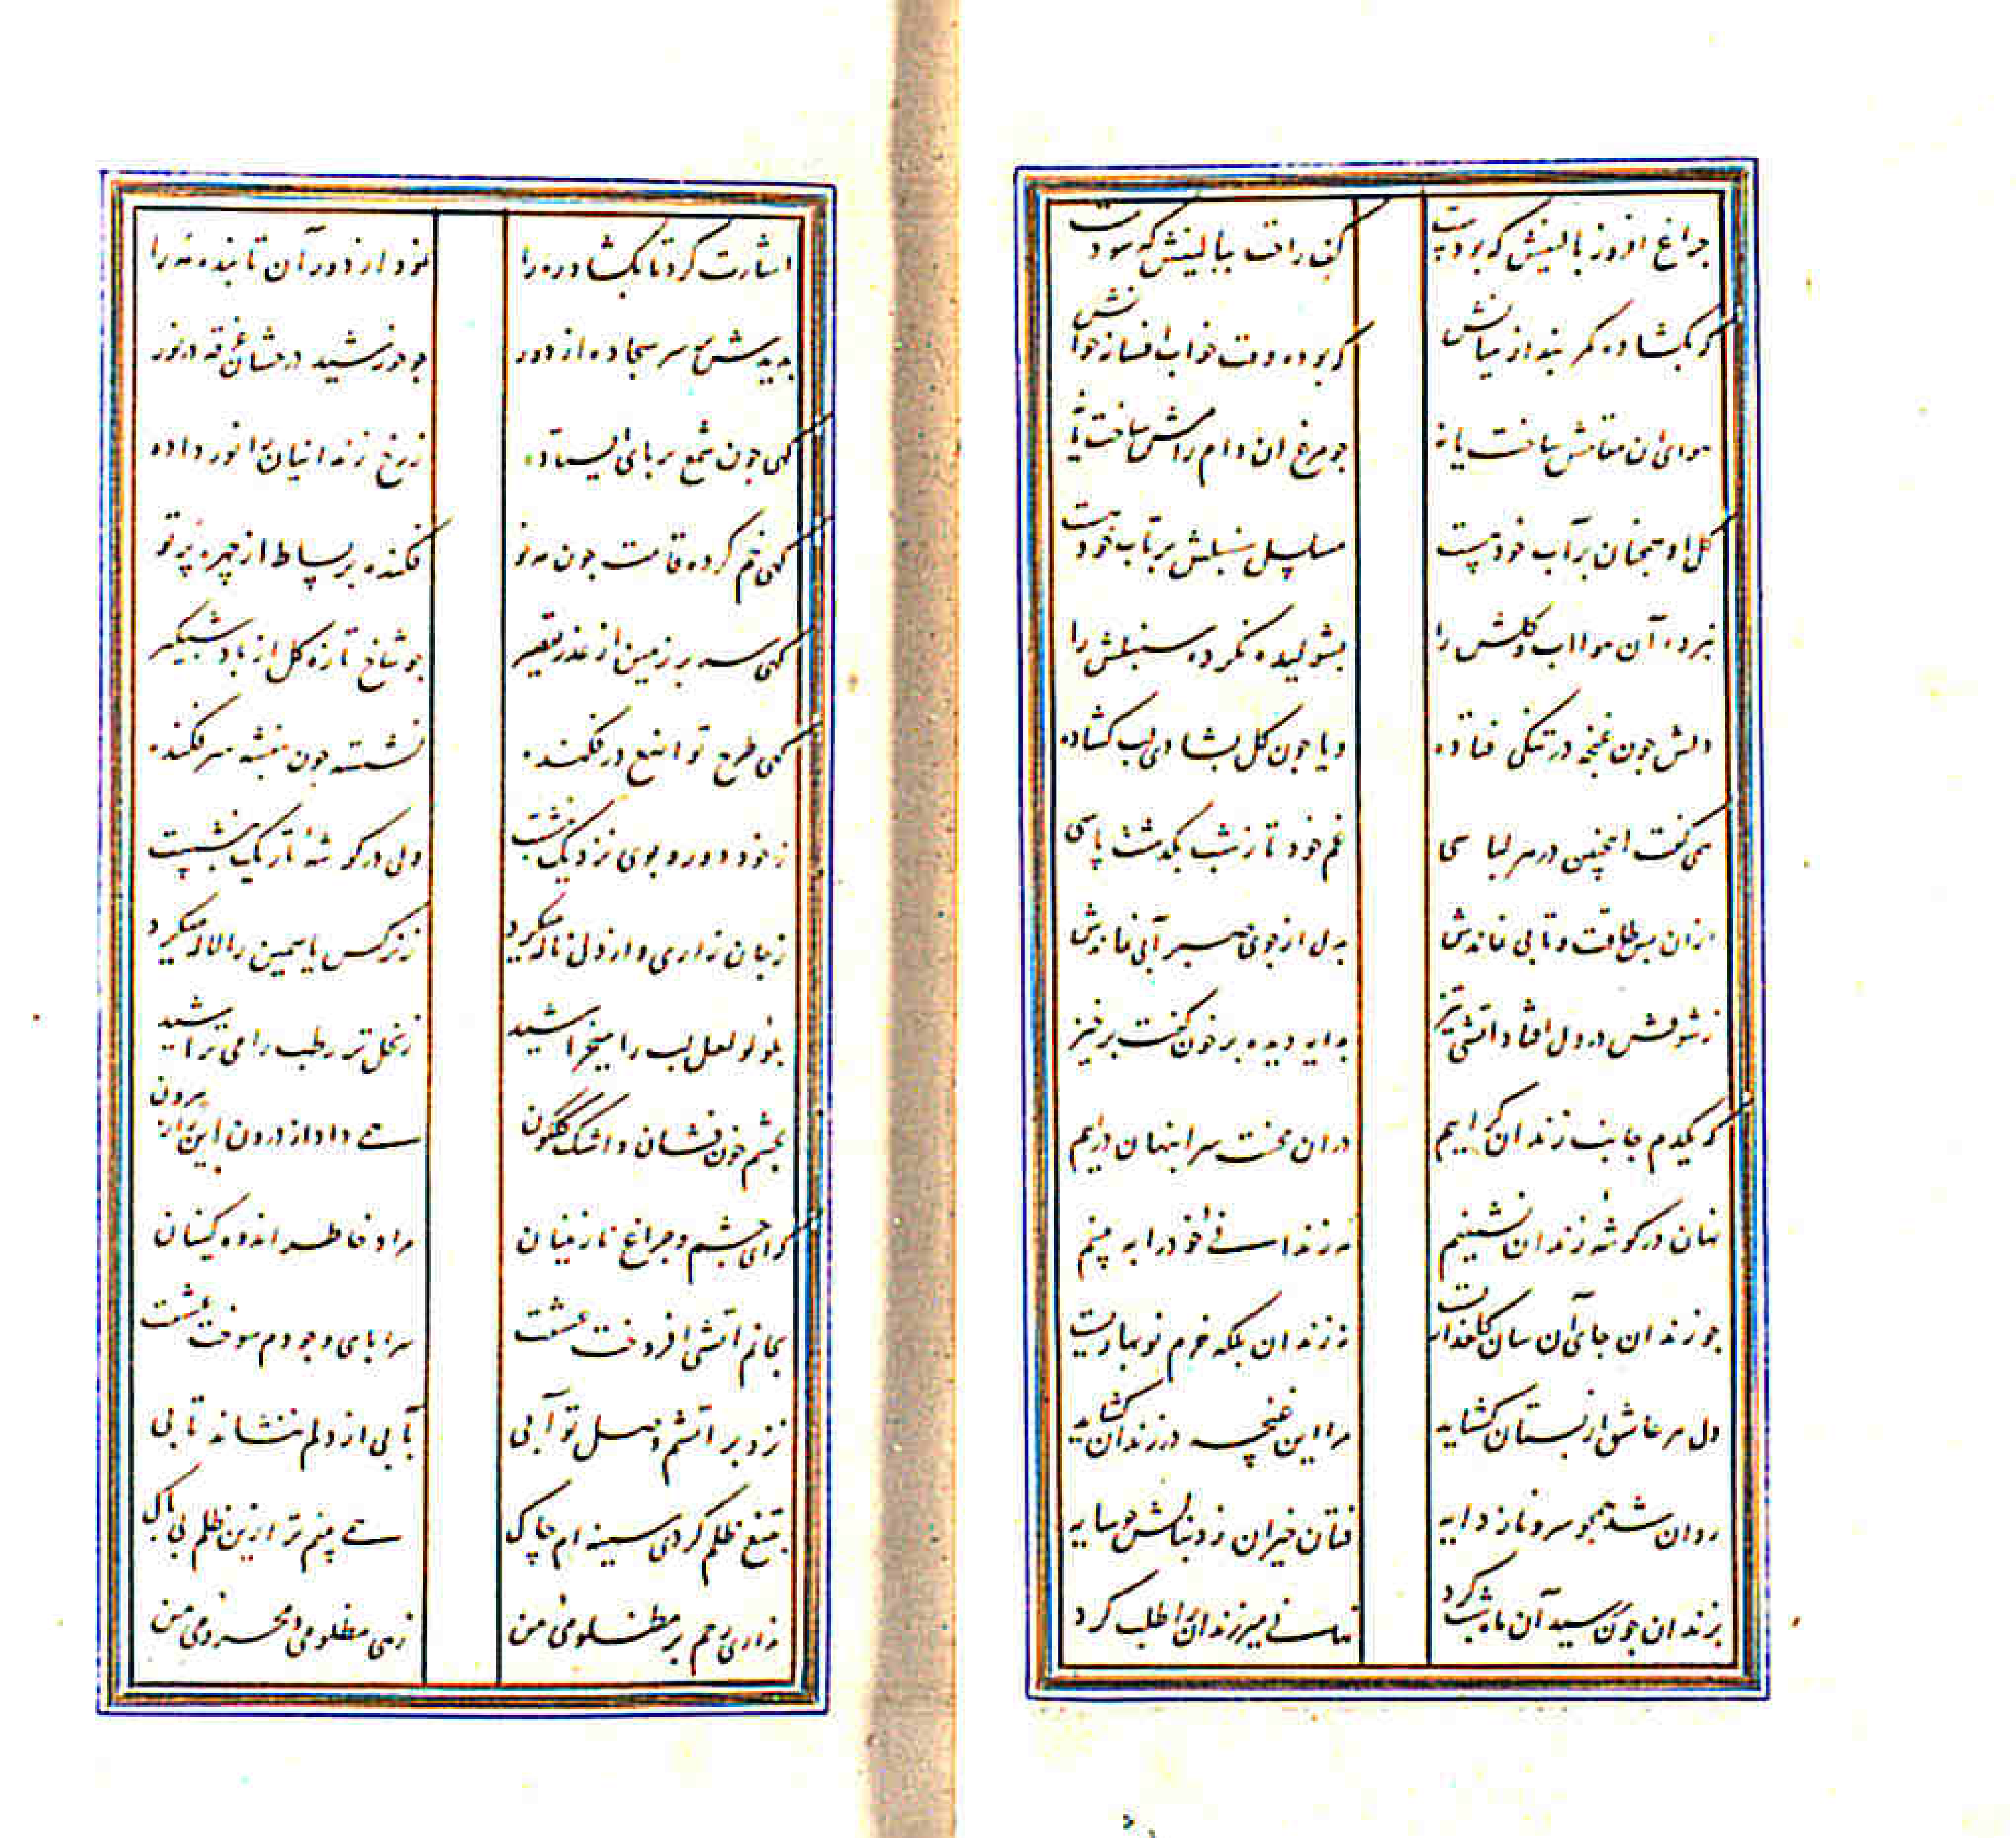 چراغ افروز بالینش که بودست کف راحت ببالینش که سودست
که بکشاده کمر بند از میانش که بوده وقت خواب افسانه خوانش
هوای ان مقامش ساخت یا نه چو مرغ ان دام رامش ساخت یا نه
کل او همچنان بر آب خودهست مسلسل سنبلش بر تاب خودهست
نبرده آن هوا اب کلش را بشولیده نکرده سنبلش را
دلش چون غنچه در تنکی فتاده ویا چون کل بشادی لب کشاده
همی کفت اینچنین در هر لباسی غم خود تا ز شب بکذشت پاسی
ازان پس طاقت و تابی نماندش بدل از جوی صبر آبی نماندش
ز شوقش در دل افتاد اتشی تیز بدایه دیده پر خون کفت برخیز
که یکدم جانب زندان کراییم دران محنت سرا پنهان دراییم
نهان در کوشه زندان نشینیم مه زندانی خود را به بینیم
چو زندان جای آن سان کلعذاریست نه زندان بلکه خرم نوبهاریست
دل هر عاشق از بستان کشاید مرا این غنچه در زندان کشاید
روان شد همچو سرو ناز دایه فتان خیزان ز دنبالش چو سایه
بزندان چون رسید آن ماه شبکرد نهانی میر زندان را طلب کرد
اشارت کرد تا بکشاد در را نمود از دور آن تابنده مه را
بدیدش بر سر سجاده از دور چو خورشید درخشان غرقه در نور
کهی چون شمع بر پای ایستاده ز رخ زندانیان را نور داده
کهی خم کرده قامت چون مه نو فکنده بر بساط از چهره پرتو
کهی سر بر زمین از عذر تقصیر چو شاخ تازه کل از باد شبکیر
کهی طرح تواضع در فکنده نشسته چون بنفشه سر فکنده
ز خود دور و بوی نزدیک بنشست ولی در کوشه تاریک بنشست
ز جان زاری و از دل ناله میکرد ز نرکس یاسمین را لاله میکرد
بلولو لعل لب را میخراشید ز نخل تر رطب را می تراشید
بچشم خون فشان و اشک کلکون همی داد از درون این راز بیرون
که ای چشم و چراغ نازنینان مراد خاطر اندوهکینان
بجانم اتشی افروخت عشقت سراپای وجودم سوخت عشقت
نزد بر اتشم وصل تو آبی بآبی از دلم ننشاند تابی
بتیغ ظلم کردی سینه ام چاک نمی بینم ترا زین ظلم بی باک
نداری رحم بر مظلومی من زهی مظلومی و محرومی من